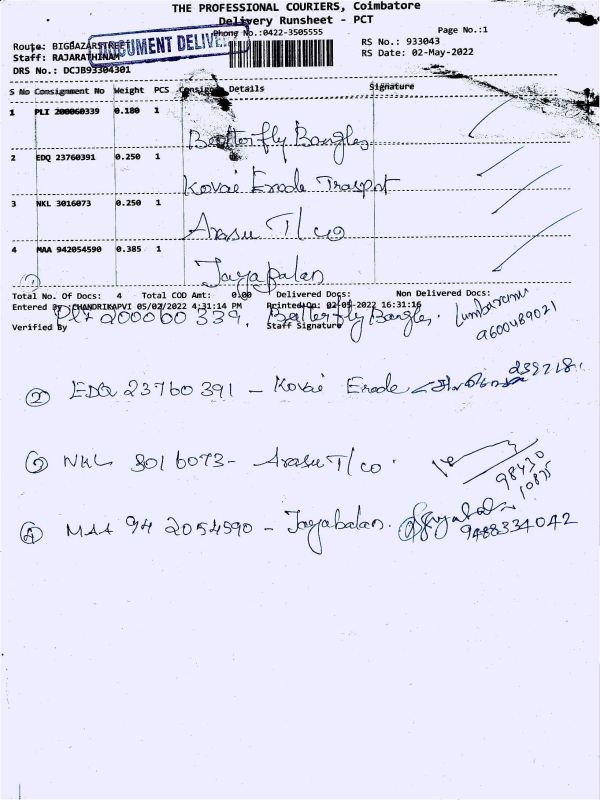 THE PROFESSIONAL COURIERS, Coimbatore
Delivery Runsheet - PCT
Phone No.:0422-3505555
Page No.:1
Route: BIGBAZARSTREET
DOCUMENT DELIVE
RS No.: 933043
Staff: RAJARATHINAM
RS Date: 02-May-2022
DRS No.: DCJB93304301
S No Consignment No Weight PCS Consignee Details Signature
1 PLI 200060339 0.180 1 Butterfly Bangles
2 EDQ 23760391 0.250 1 Kovai Erode Trasport
3 NKL 3016073 0.250 1 Arasu T/co
4 MAA 942054590 0.385 1 Jayabalan
Total No. Of Docs: 4 Total COD Amt: 0.00 Delivered Docs: Non Delivered Docs:
Entered By :CHANDRIKAPVI 05/02/2022 4:31:14 PM Printed On: 02-05-2022 16:31:16
1 PLI 200060 339, Butterfly Bangles.
9600489021
Verified By Staff Signature
2 EDQ 23760391 - Kovai Erode
3 NKL 3016073 - Arasu T/co.
98430
10875
4 MAA 94 2054590 - Jayabalan.
9488334042